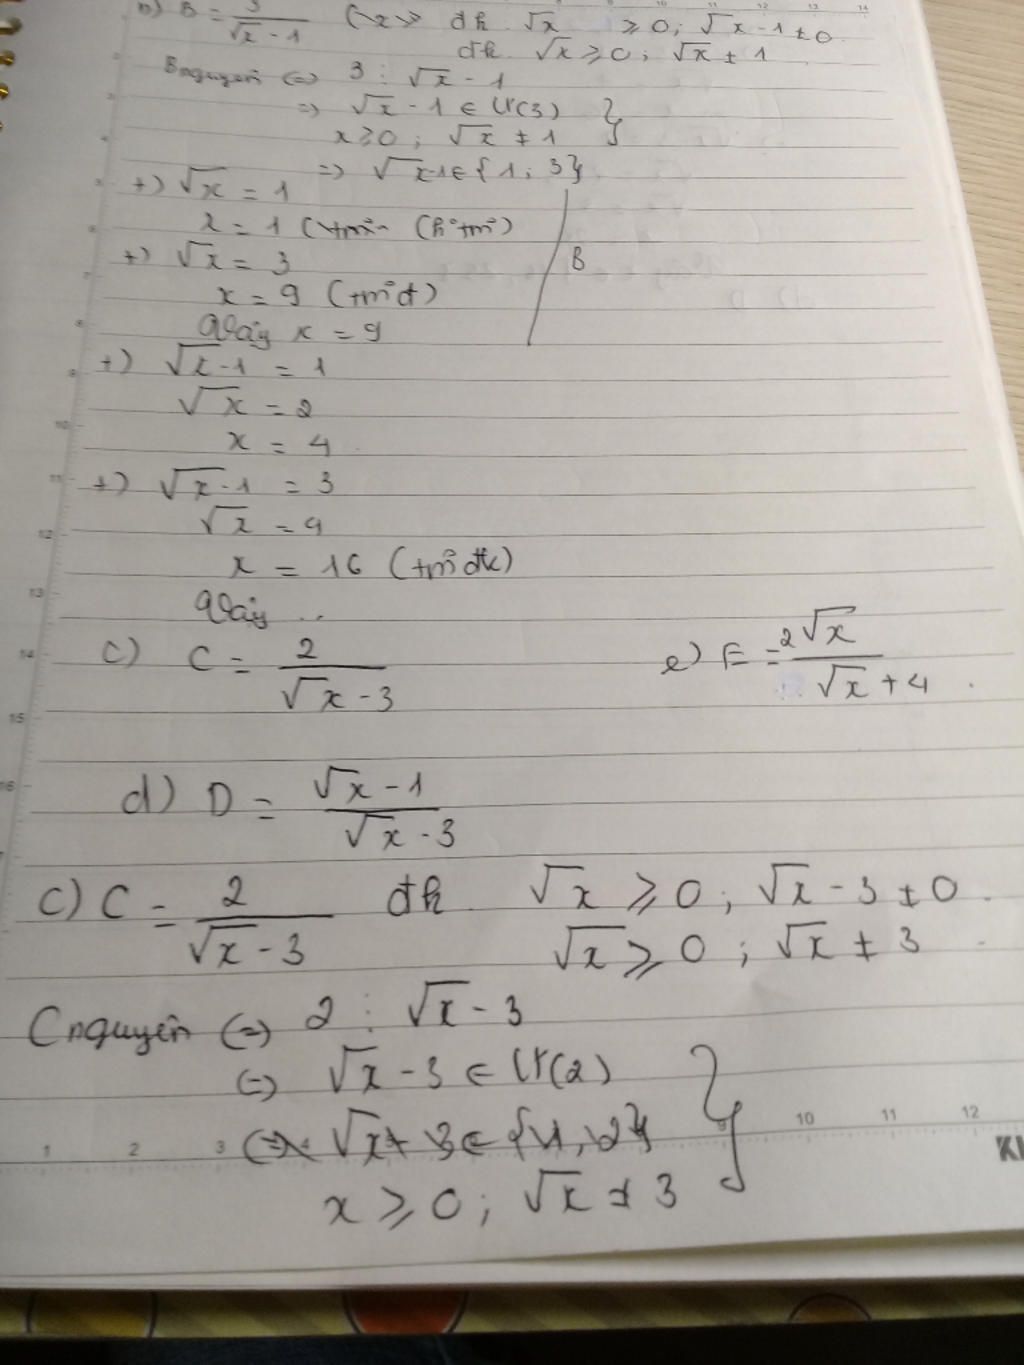 b) B = 3/(√x - 1) (x ≥ đk √x ≥ 0; √x - 1 ≠ 0
đk √x ≥ 0; √x ≠ 1
B nguyên ⇔ 3 ⋮ √x - 1
⇒ √x - 1 ∈ Ư(3) }
x ≥ 0; √x ≠ 1
⇒ √x-1 ∈ {1; 3}
+) √x = 1
x = 1 (k tm)
+) √x = 3
B
x = 9 (tmđ)
Vậy x = 9
+) √x - 1 = 1
√x = 2
x = 4
+) √x - 1 = 3
√x = 4
x = 16 (tmđk)
Vậy ..
c) C = 2/(√x - 3)
e) E = 2√x/(√x + 4)
d) D = (√x - 1)/(√x - 3)
c) C = 2/(√x - 3) đk √x ≥ 0; √x - 3 ≠ 0
√x ≥ 0; √x ≠ 3
C nguyên ⇔ 2 ⋮ √x - 3
⇔ √x - 3 ∈ Ư(2) }
x ≥ 0; √x ≠ 3
1 2 3 9 10 11 12